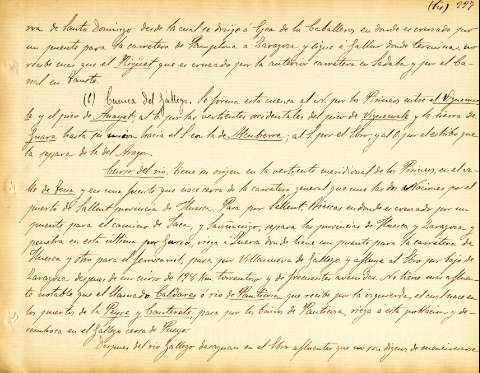 (61) 227
rra de Santo Domingo desde la cual se dirige á Egea de los Caballeros en donde es cruzado por
un puente para la carretera de Pamplona á Zaragoza y sigue á Gallur donde termina; no
recibe mas que el Riguel que es cruzado por la anterior carretera en Sadaba y por el Ca-
nal en Tauste.
Cuenca del Gallego. Se forma esta cuenca al N. por los Pirineos entre el Vignemale
y el pico de Anayet; al E. por las vertientes occidentales del pico de Vignemale y la sierra de
Guara hasta su unión hacia el S. con la de Alcubierre; al S. por el Ebro y al O. por el estribo que
la separa de la del Aragon.
Curso del rio. Tiene su origen en la vertiente meridional de los Pirineos, en el va-
lle de Tena y en una fuente que nace cerca de la carretera general que une las dos Naciones por el
puerto de Sallent provincia de Huesca. Pasa por Sallent, Biescas en donde es cruzado por un
puente para el camino de Jaca, y Sauminigo, separa las provincias de Huesca y Zaragoza y
penetra en esta ultima por Gurrea, riega á Zuera donde tiene un puente para la carretera de
Huesca y otro para el ferrocarril, pasa por Villanueva de Gallego y afluye al Ebro por bajo de
Zaragoza despues de un curso de 128 Km. torrentoso y de frecuentes avenidas. No tiene mas afluen-
te notable que el llamado Caldares ó rio de Panticosa que recibe por la izquierda, el cual nace en
los puertos de la Peyre y Cauterets, pasa por los baños de Panticosa, riega á esta poblacion y de-
semboca en el Gallego cerca de Pueyo.
Despues del rio Gallego desaguan en el Ebro afluentes que no son dignos de mencionarse